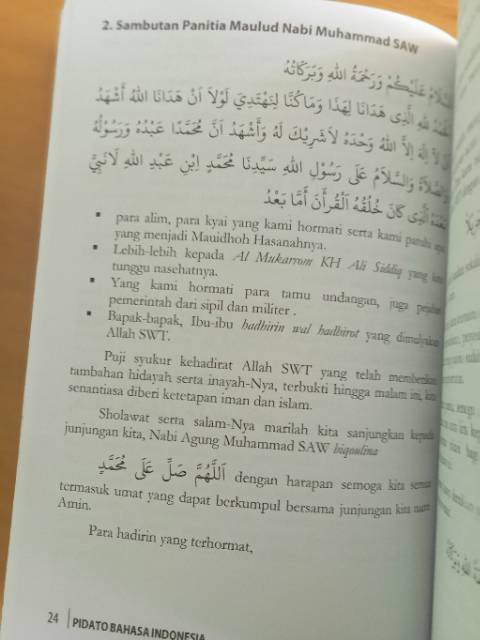 2. Sambutan Panitia Maulud Nabi Muhammad SAW
عَلَيْكُمْ وَرَحْمَةُ اللهِ وَبَرَكَاتُهُ
الَّذِى هَدَانَا لِهَذَا وَمَاكُنَّا لِنَهْتَدِيَ لَوْلاَ اَنْ هَدَانَا اللهُ أَشْهَدُ
لاَ اِلَهَ اِلاَّ اللهُ وَحْدَهُ لاَشَرِيْكَ لَهُ وَأَشْهَدُ اَنَّ مُحَمَّدًا عَبْدُهُ وَرَسُوْلُهُ
وَالسَّلاَمُ عَلَى رَسُوْلِ اللهِ سَيِّدِنَا مُحَمَّدٍ اِبْنِ عَبْدِ اللهِ لَانَبِيَّ
الَّذِى كَانَ خُلُقُهُ الْقُرْأَنَ أَمَّا بَعْدُ
▪ para alim, para kyai yang kami hormati serta kami
yang menjadi Mauidhoh Hasanahnya.
▪ Lebih-lebih kepada Al Mukarrom KH Ali Siddiq yang
tunggu nasehatnya.
▪ Yang kami hormati para tamu undangan, juga
pemerintah dari sipil dan militer .
▪ Bapak-bapak, Ibu-ibu hadhirin wal hadhirot yang
Allah SWT.
Puji syukur kehadirat Allah SWT yang telah
tambahan hidayah serta inayah-Nya, terbukti hingga malam ini,
senantiasa diberi ketetapan iman dan islam.
Sholawat serta salam-Nya marilah kita sanjungkan kepada
junjungan kita, Nabi Agung Muhammad SAW biqoulina
اَللّٰهُمَّ صَلِّ عَلَى مُحَمَّدٍ dengan harapan semoga kita
termasuk umat yang dapat berkumpul bersama junjungan kita
Amin.
Para hadirin yang terhormat,
24 | PIDATO BAHASA INDONESIA